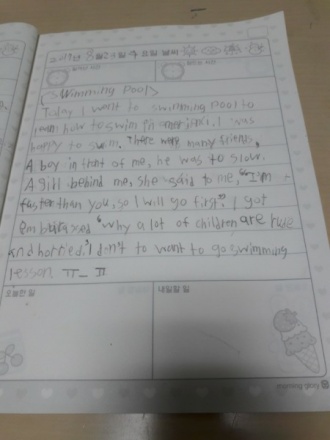 2019년 8월 23일 요일
Swimming Pools
Today I want to swimming pool to
learn how to swim I was
happy to swim. There were many friends,
A boy in front of me, he was to slow.
A girl behind me, she said to me, "I'm
faster than you, so I will go first." I got
embarassed "Why a lot of children are rude
and horried." I don't to want to go swimming
lesson ㅠ_ㅠ
morning glory